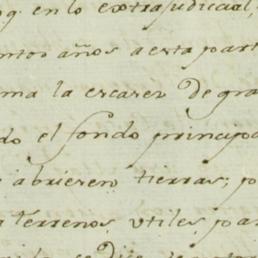 en lo extrajudicial,
años a esta part
ma la escasez de gra
do el fondo principa
abriesen tierras; p
terrenos utiles pa